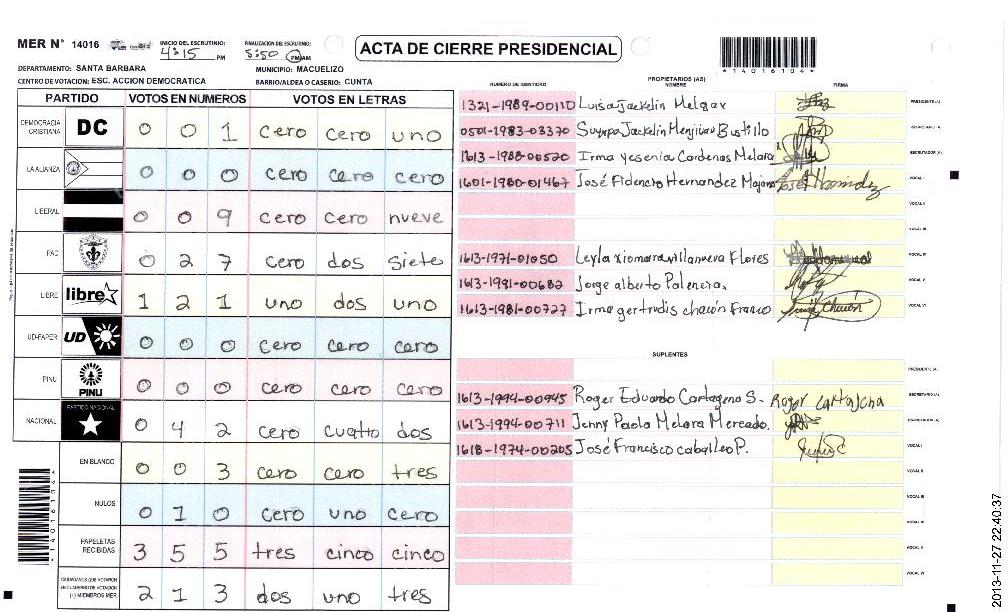 MER N° 14016
INICIO DEL ESCRUTINIO:
4:15 PM
FINALIZACION DEL ESCRUTINIO:
5:50 PM AM
ACTA DE CIERRE PRESIDENCIAL
*14016104*
DEPARTAMENTO: SANTA BARBARA
MUNICIPIO: MACUELIZO
CENTRO DE VOTACION: ESC. ACCION DEMOCRATICA
BARRIO/ALDEA O CASERIO: CUNTA
PARTIDO VOTOS EN NUMEROS VOTOS EN LETRAS
DEMOCRACIA CRISTIANA DC 0 0 1 cero cero uno
LA ALIANZA 0 0 0 cero cero cero
LIBERAL 0 0 9 cero cero nueve
PAC 0 2 7 cero dos siete
LIBRE libre 1 2 1 uno dos uno
UD-FAPER UD 0 0 0 cero cero cero
PINU PINU 0 0 0 cero cero cero
NACIONAL PARTIDO NACIONAL 0 4 2 cero cuatro dos
EN BLANCO 0 0 3 cero cero tres
NULOS 0 1 0 cero uno cero
PAPELETAS RECIBIDAS 3 5 5 tres cinco cinco
CIUDADANOS QUE VOTARON EN CUADERNO DE VOTACION (+) MIEMBROS MER 2 1 3 dos uno tres
*14016104*
PROPIETARIOS (AS)
NUMERO DE IDENTIDAD NOMBRE FIRMA
1321-1989-00110 Luisa Jackelin Melgar PRESIDENTE (A)
0501-1983-03370 Suyapa Jackelin Menjivar Bustillo SECRETARIO (A)
1613-1988-00520 Irma yesenia Cardenas Melara ESCRUTADOR (A)
1601-1980-01467 José Fidencio Hernandez Majano VOCAL I
VOCAL II
VOCAL III
1613-1971-01050 Leyla xiomara villanueva Flores VOCAL IV
1613-1991-00682 Jorge alberto Palencia. VOCAL V
1613-1981-00727 Irma gertrudis chacón Franco VOCAL VI
SUPLENTES
PRESIDENTE (A)
1613-1994-00945 Roger Eduardo Cartagena S. Roger Cartagena SECRETARIO (A)
1613-1994-00711 Jenny Paola Melara Mercado. ESCRUTADOR (A)
1618-1974-00205 José Francisco caballeo P. VOCAL I
VOCAL II
VOCAL III
VOCAL IV
VOCAL V
VOCAL VI
2013-11-27 22:40:37